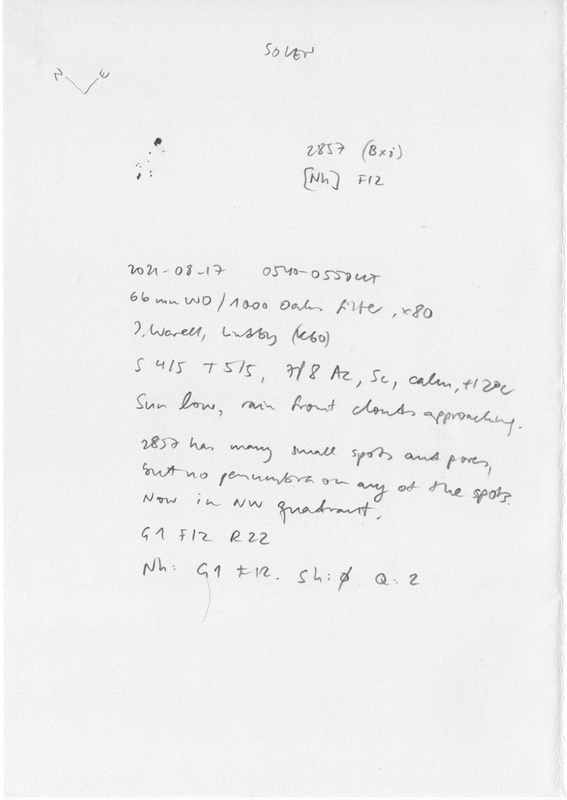 SOLEN
N E
2857 (Bxi)
[Nh] F12
2021-08-17 0540-0550UT
66mm WO/1000 Oaks filter, x80
J. Warell, Lindby (K60)
S 4/5 T 5/5, 7/8 Ac, Sc, calm, +12°C
Sun low, rain front clouds approaching.
2857 has many small spots and pores,
but no penumbra on any of the spots.
Now in NW quadrant.
G1 F12 R22
Nh: G1 F12. Sh: ∅ Q: 2